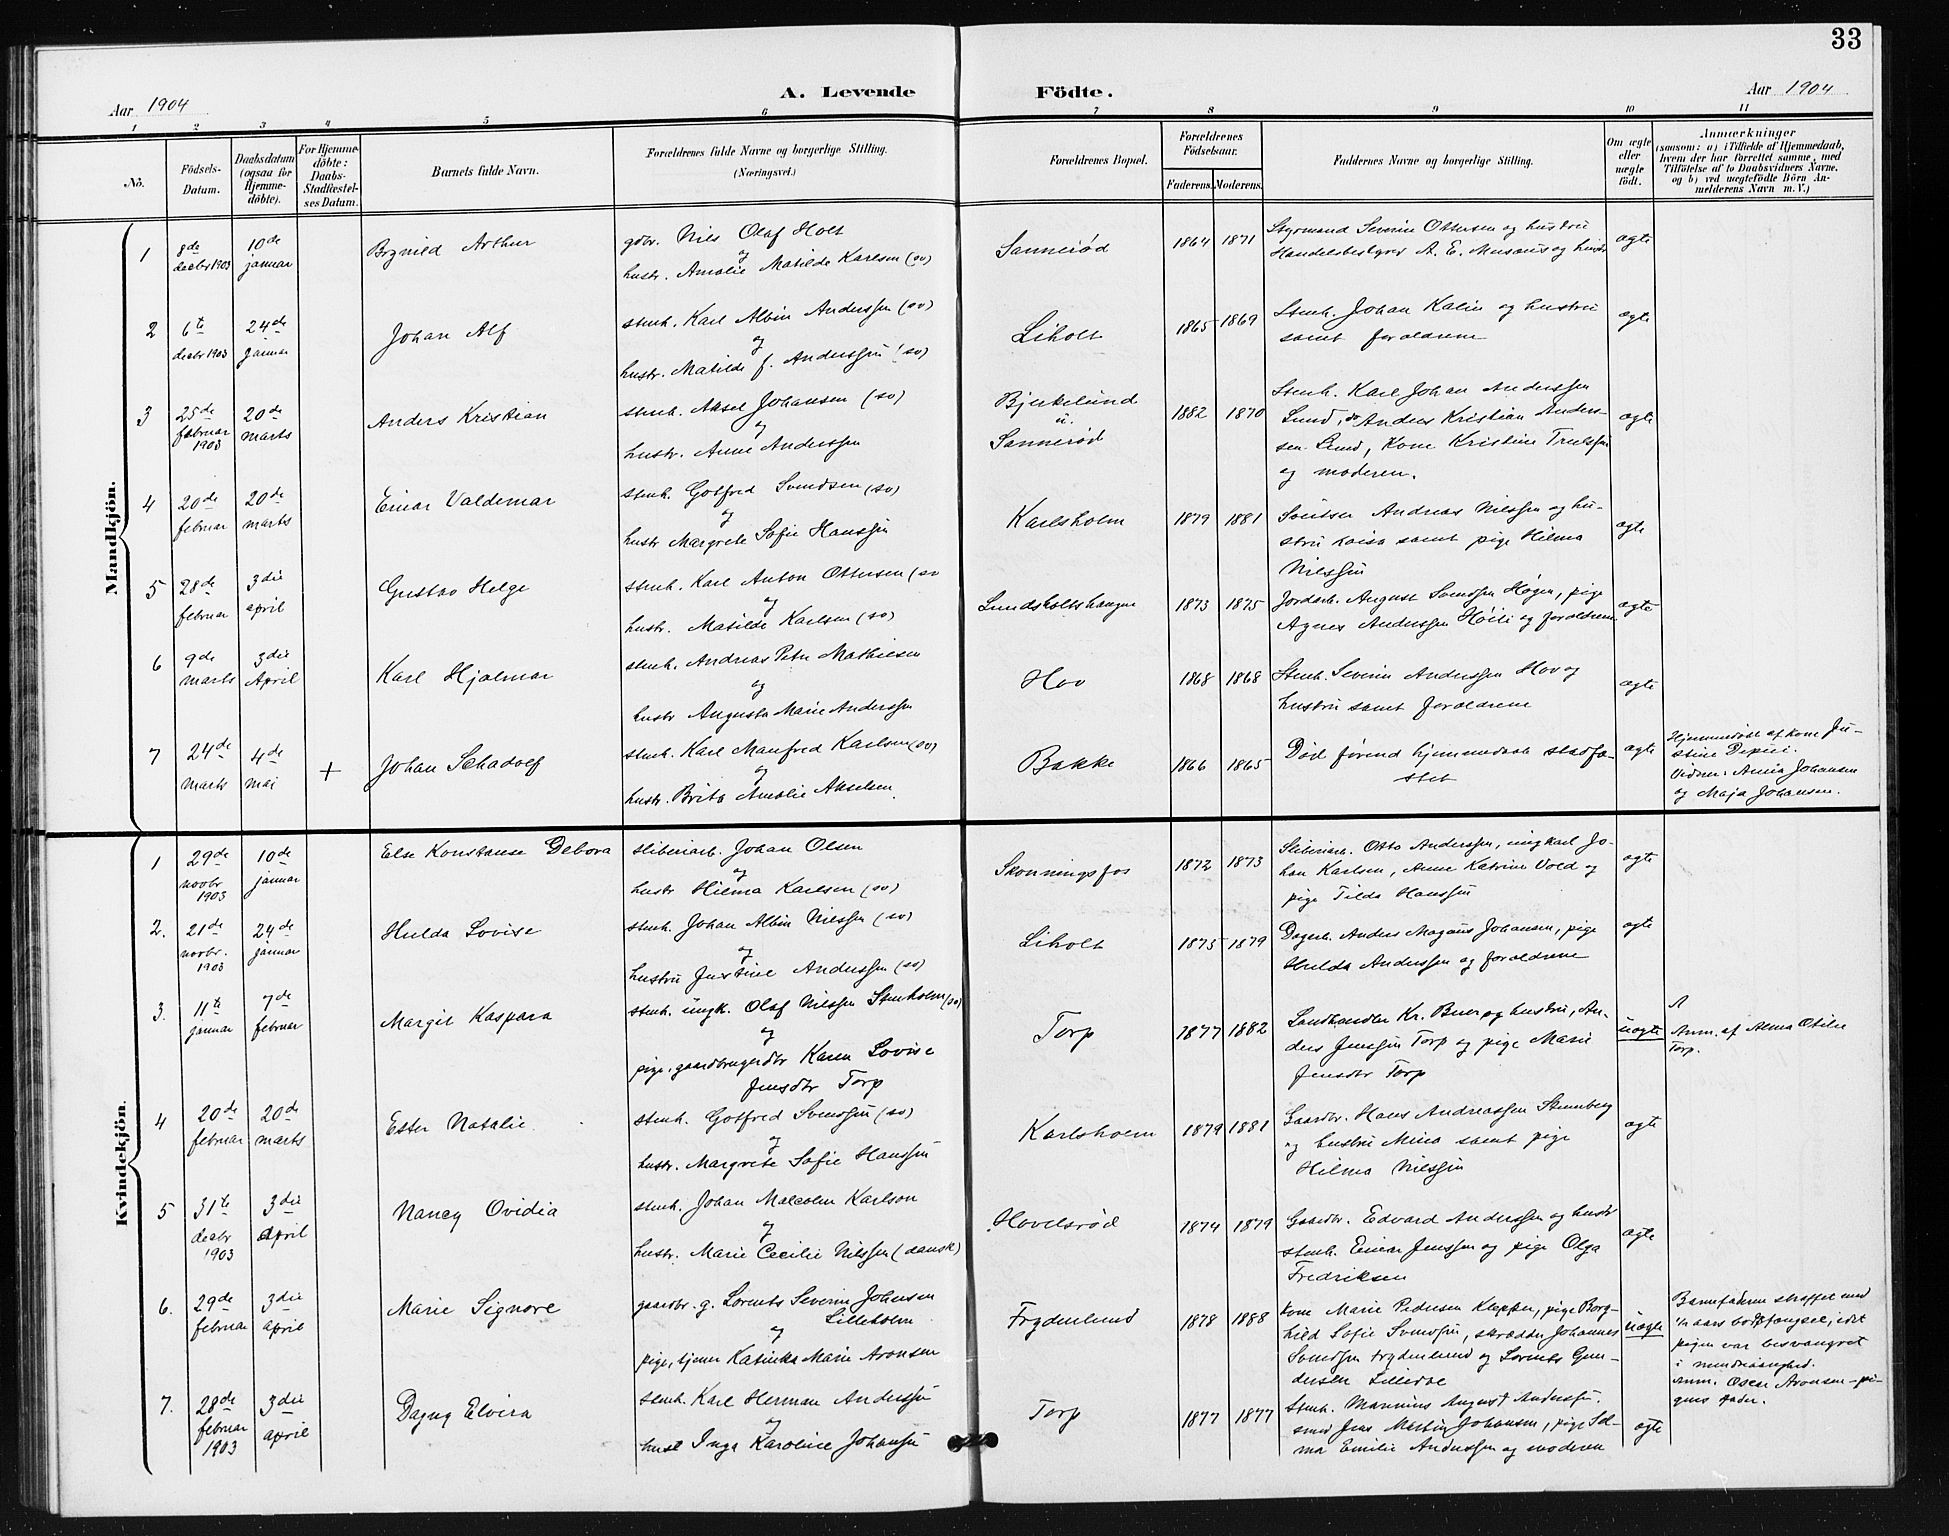 33
Aar 1904
A. Levende Födte.
Aar 1904
1 2 3 4 5 6 7 8 9 10 11
No.
Födsels-
Datum.
Daabsdatum
(ogsaa for
Hjemme-
döbte).
For Hjemme-
döbte:
Daabs-
Stadfæstel-
ses Datum.
Barnets fulde Navn.
Forældrenes fulde Navne og borgerlige Stilling.
(Næringsvei.)
Forældrenes Bopæl.
Forældrenes
Födselsaar.
Faderens. Moderens.
Faddernes Navne og borgerlige Stilling.
Om ægte
eller
uægte
födt.
Anmærkninger
(saasom: a) i Tilfælde af Hjemmedaab,
hvem der har forrettet samme, med
Tilföielse af to Daabsvidners Navne,
og b) ved uægtefödte Börn An-
melderens Navn m. V.)
Mandkjön.
1
8de
decbr 1903
10de
januar
Brynild Arthur
gdbr. Nils Olaf Holt
og
hustr. Amalie Matilde Karlsen (sv)
Sannerød
1864 1871
Styrmand Severin Ottersen og hustru
Handelsbestyrer A. E. Musæus og hustr
ægte
2
6te
decbr 1903
24de
januar
Johan Alf
stenh. Karl Albin Anderssen (sv)
og
hustr. Matilde f. Anderssen (sv)
Liholt
1865 1869
Stenh. Johan Kalin og hustru
samt forældrene
ægte
3
25de
februar
1903
20de
marts
Anders Kristian
stenh. Aksel Johansen (sv)
og
hustr. Anne Anderssen
Bjerkelund
u.
Sannerød
1882 1870
Stenh. Karl Johan Anderssen
Lund, do Anders Kristian Anders-
sen Lund, Kone Kristine Trulssen
og moderen.
ægte
4
20de
februar
20de
marts
Einar Valdemar
stenh. Gotfred Svendsen (sv)
og
hustr Margrete Sofie Hanssen
Karlsholm
1879 1881
Sveitser Andreas Nilssen og hu-
stru Kaisa samt pige Hilma
Nilssen
ægte
5
28de
februar
3die
april
Gustav Helge
stenh. Karl Anton Ottersen (sv
og
hustr. Matilde Karlsen (sv)
Lundsholtshaugen
1873 1875
Jordarb. August Svenssen Høgen, pige
Agnes Anderssen Høili og forældrene
ægte
6
9de
marts
3die
April
Karl Hjalmar
stenh. Andreas Petr Mathiesen
og
hustr Augusta Marie Anderssen
Hov
1868 1868
Stenh. Severin Anderssen Hov og
hustru samt forældrene
ægte
7
24de
marts
4de
mai
+
Johan Schadolf
stenh. Karl Manfred Karlsen (sv)
og
hustr. Brita Amalie Akselsen.
Bakke
1866 1865
Død førend hjemmedaab stadfæ-
stet
ægte
Hjemmedøbt af kone Ju-
stine
Vidner: Anna Johansen
og Maja Johansen.
Kvindekjön.
1
29de
novbr
1903
10de
januar
Else Konstanse Debora
sliberiarb. Johan Olsen
og
hustr Hilma Karlsen (sv)
Skonningsfos
1872 1873
Sliberiarb. Otto Anderssen, ungkarl Jo-
han Karlsen, Anne Katrine Vold og
pige Tilda Hanssen
ægte
2.
21de
novbr.
1903
24de
januar
Hulda Lovise
stenh. Johan Albin Nilssen (sv)
og
hustru Justine Anderssen (sv)
Liholt
1875 1879
Dagarb. Anders Magnus Johansen, pige
Hulda Anderssen og forældrene
ægte
3.
11te
januar
7de
februar
Margit Kaspara
stenh. ungk. Olaf Nilssen Stenholm (sv)
og
pige, gaardbrugerdtr Karen Lovise
Jensdtr Torp
Torp
1877 1882
Landhandler Kr. Buer og hustru, An-
ders Jenssen Torp og pige Marie
Jensdtr Torp
uægte
Anm. af Alma Otilie
Torp.
4
20de
februar
20de
marts
Ester Natalie.
stenh. Gotfred Svenssen (sv)
og
hustr. Margrete Sofie Hanssen
Karlsholm
1879 1881
Gaardbr. Hans Andreassen Stenberg
og hustru Mina samt pige
Hilma Nilssen
ægte
5
31te
decbr
1903
3die
April
Nancy Ovidia
stenh. Johan Malcolm Karlson
og
hustr. Marie Cecilie Nilssen (dansk)
Hovelsrød
1874 1879
Gaardbr. Edvard Anderssen og hustr
stenh. Einar Jenssen og pige Olga
Fredriksen
ægte
6.
29de
februar
3die
april
Marie Signore
gaardbr. g. Lorents Severin Johansen
Lilleholm
og
pige, tjener Katinka Marie Aronsen
Frydenlund
1878 1888
kone Marie Pedersen Kleppen, pige Borg-
hild Sofie Svendsen, skrædder Johannes
Svendsen Frydenlund og Lorents Gun-
dersen Lilledal
uægte
Barnefaderen straffet med
aars bodsfængsel, idet
pigen var besvangret
i mindreaarighed.
Anm. Oscar Aronsen - pi-
gens fader.
7.
28de
februar
1903
3die
april
Dagny Elvira
stenh. Karl Herman Anderssen
og
hust Inga Karoline Johansen
Torp
1877 1877
Stenh. Magnus August Anderssen.
smed Jens Martin Johansen, pige Sel-
ma Emilie Anderssen og moderen
ægte